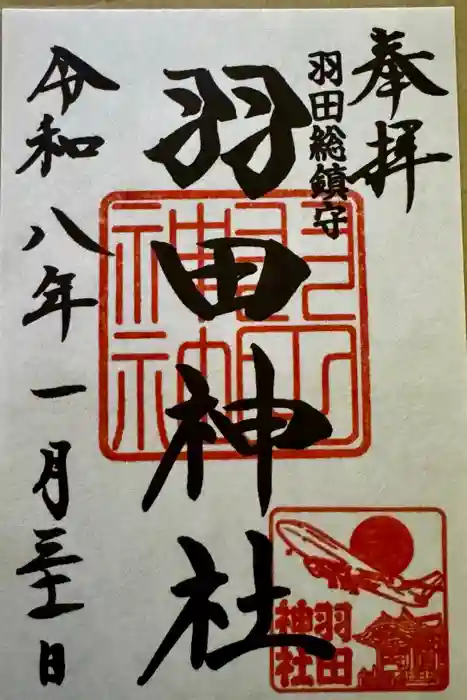 奉拝
羽田総鎮守
羽田神社
令和八年一月三十一日
羽田
神社
羽田
神社